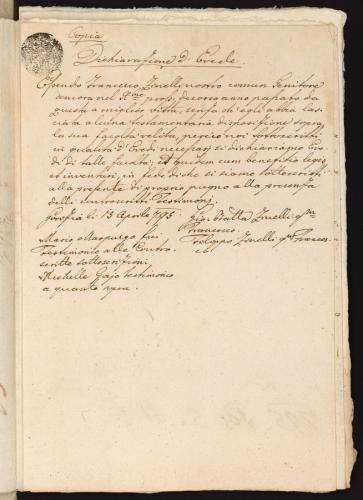 Copia
Dichiarazione d' Erede.
Essendo Francesco Zonelli nostro comun Genitore
ancora nel prossi: decorso anno passato da
questa a miglior vita, senza ch' egli abbia las-
ciata alcuna testamentaria disposizione sopra
la sua facoltà relita, perciò noi sottoscritti
in qualità d' Eredi necessarj si dichiariamo Ere-
di di talle facoltà, et quidem cum beneficio legis
et inventarj, in fede di che si siamo sottoscritti
alla presente di proprio pugno alla presenza
delli Testimonj.
li 13 Aprile 795.
Gio: Batta Zonelli qm
Francesco
Filippo Zonelli qm Frances-
co
Mario fui
testimonio alle Contro-
scritte sottoscrizioni,
Michelle testimonio
a quanto sopra.